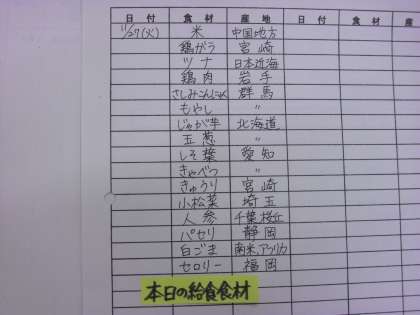 日付 食材 産地 日付 食材 産
11/27(火) 米 中国地方
鶏がら 宮崎
ツナ 日本近海
鶏肉 岩手
さしみこんにゃく 群馬
もやし 〃
じゃが芋 北海道
玉葱 〃
しそ葉 愛知
きゃべつ 〃
きゅうり 宮崎
小松菜 埼玉
人参 千葉、
パセリ 静岡
白ごま 南米、アフリカ
セロリー 福岡
本日の給食食材